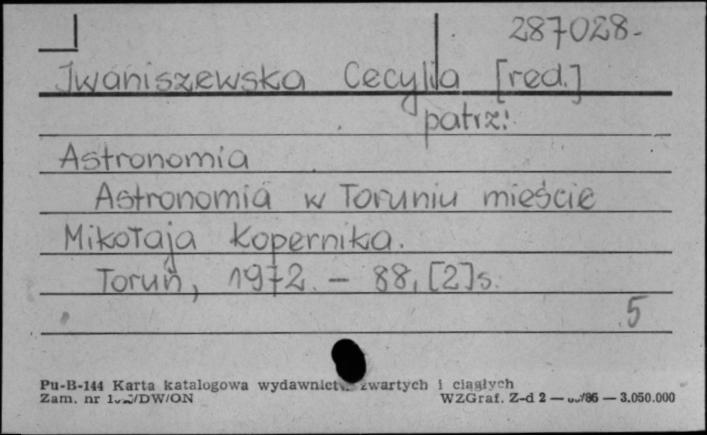 287028-
Iwaniszewska Cecylia [red.]
patrz:
Astronomia
Astronomia w Toruniu mieście
Mikołaja Kopernika.
Toruń, 1972. – 88, [2]s.
5
Pu-B-144 Karta katalogowa wydawnictw zwartych i ciągłych
Zam. nr /DW/ON WZGraf. Z-d 2 — /86 — 3.050.000